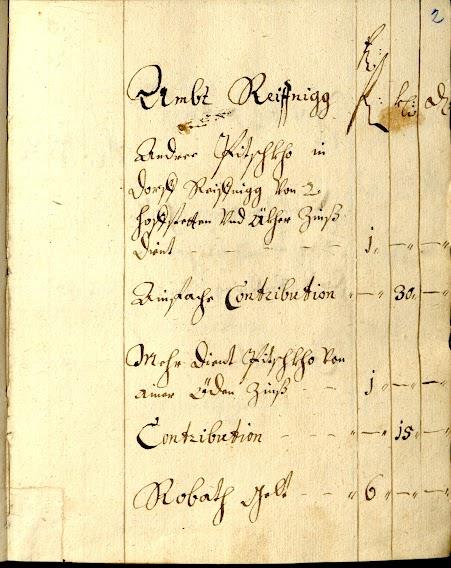 2
Ambt Reiffnigg fl: kr: d:
Andree Pitschkho in
Dorff Reiffnigg von 2
hoffstetten und Äkher Zinß
dient – – – 1, –„ –„
Ainfache Contribution „–„ 30, –„
Mehr dient Pitschkho von
ainer Öden Zinß – – 1 „–„ –„
Contribution – – – „–„ 15, –„
Robath gelt – – „ 6 „–„ –„